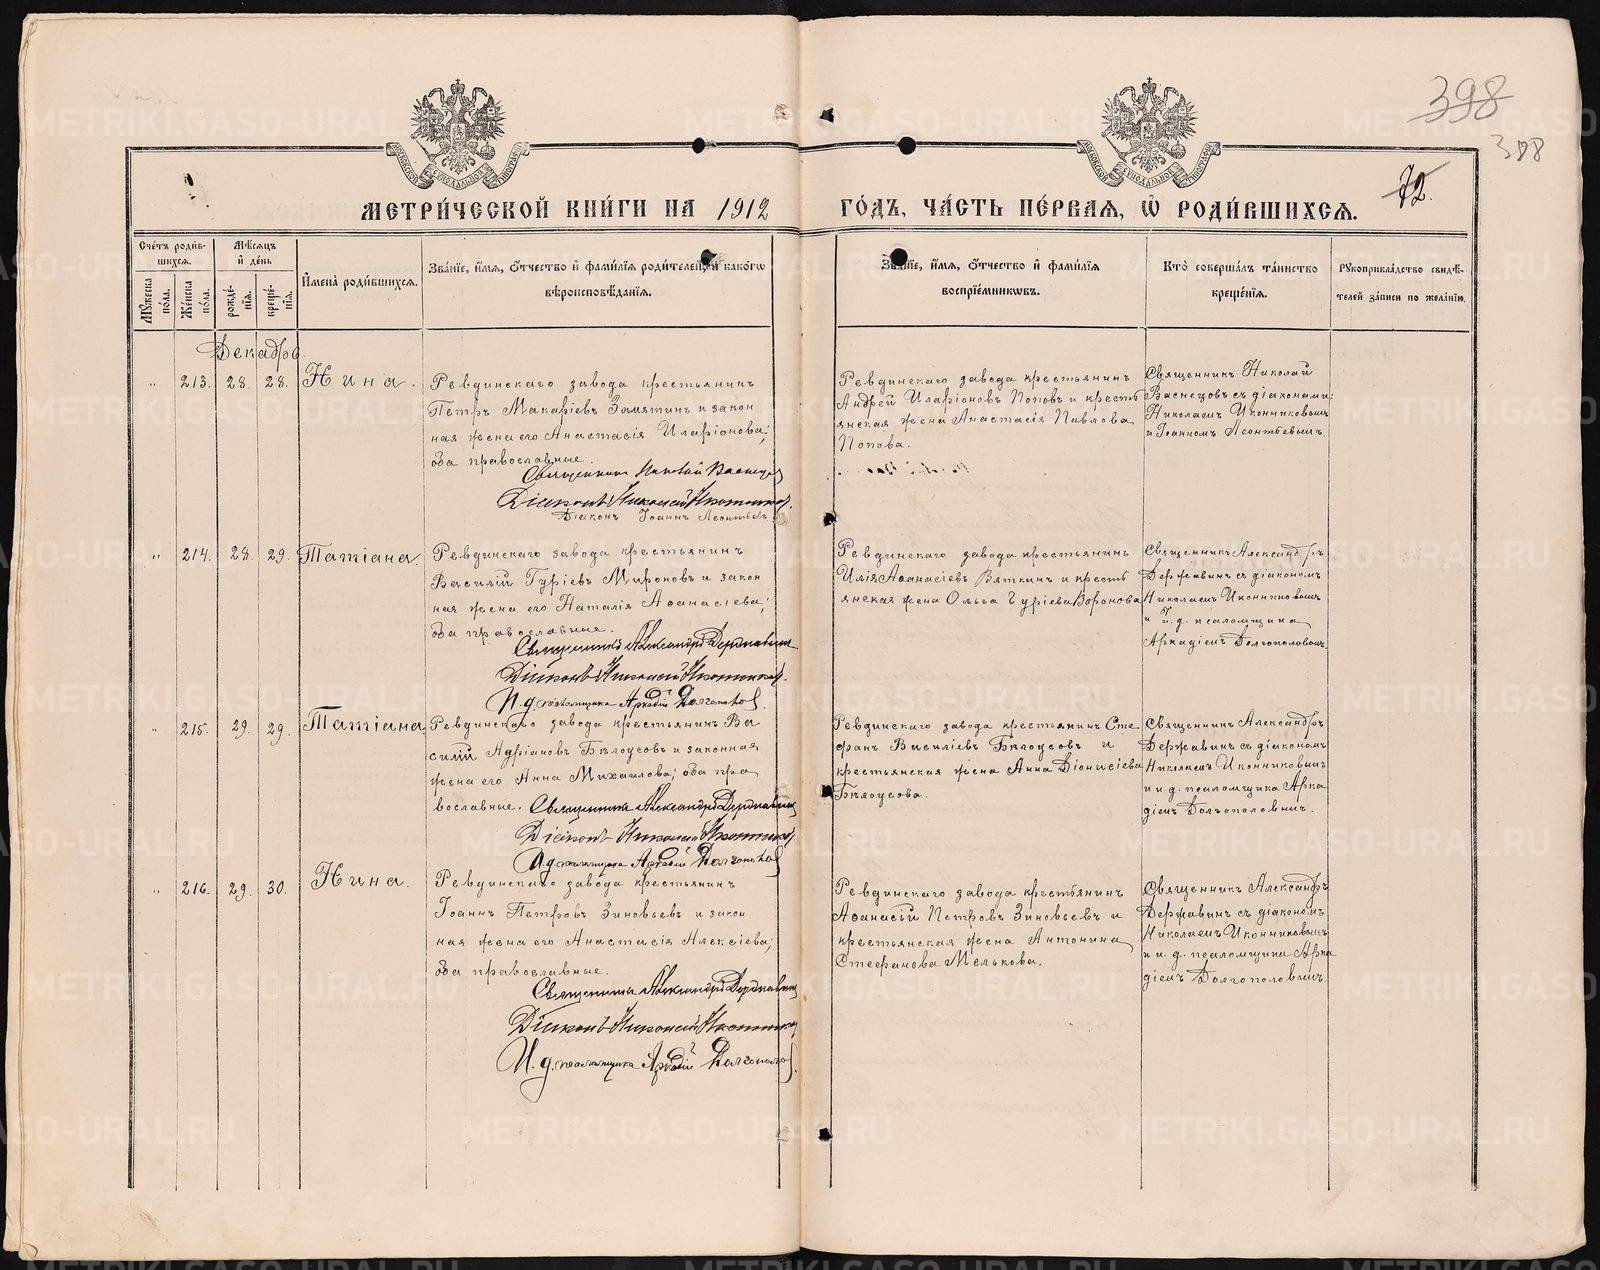 398
388
72.
МОСКОВСКОЙ СѴНОДАЛЬНОЙ ТИПОГРАФІИ
МОСКОВСКОЙ СѴНОДАЛЬНОЙ ТИПОГРАФІИ
МЕТРИ́ЧЕСКОЙ КНИ́ГИ НА 1912 ГО́ДЪ, ЧА́СТЬ ПЕ́РВАЯ, Ѡ҆ РОДИ́ВШИХСЯ.
Сче́тъ роди́в-
шихся.
Мꙋ́жеска по́ла.
Же́нска по́ла.
Мѣ́сяцъ
и҆ де́нь
рожде-
нія.
креще-
нія.
И҆мена̀ роди́вшихся.
Зва́нїе, и҆́мя, ѻ҆́тчество и҆ фами́лїя роди́телей, и҆ како́гѡ
вѣроисповѣ́данїя.
Зва́нїе, и҆́мя, ѻ҆́тчество и҆ фами́лїя
воспрїе́мникѡвъ.
Кто̀ соверша́лъ та́инство
креще́нїя.
Рꙋкоприкла́дство свидѣ́-
телей за́писи по жела́нїю.
Декабрь
„ 213. 28. 28. Нина.
Ревдинскаго завода крестьянинъ
Петръ Макаріевъ Замятинъ и закон
ная жена его Анастасія Иларіонова;
оба православные.
Священникъ Николай Васнецов
Діаконъ Николай Иконников.
Діаконъ Іоаннъ Леонтьевъ
Ревдинскаго завода крестьянинъ
Андрей Иларіоновъ Поповъ и кресть
янская жена Анастасія Павлова
Попова.
Священникъ Николай
Васнецовъ съ діаконами:
Николаемъ Иконниковымъ
и Іоанномъ Леонтьевымъ.
„ 214. 28. 29. Татіана.
Ревдинскаго завода крестьянинъ
Василій Гуріевъ Мироновъ и закон
ная жена его Наталія Аѳанасіева;
оба православные.
Священникъ Александръ Державинъ
Діаконъ Николай Иконников.
И.д. псаломщика Аркадій Долгополов.
Ревдинскаго завода крестьянинъ
Илія Аѳанасіевъ Вяткинъ и кресть
янская жена Ольга Гуріева Воронова
Священникъ Александръ
Державинъ съ діакономъ
Николаемъ Иконниковымъ
и и.д. псаломщика
Аркадіемъ Долгополовымъ.
„ 215. 29. 29. Татіана
Ревдинскаго завода крестьянинъ Ва
силій Адріановъ Бѣлоусовъ и законная
жена его Анна Михаилова; оба пра
вославные. Священникъ Александръ Державинъ
Діаконъ Николай Иконников.
И.д. псаломщика Аркадій Долгополов
Ревдинскаго завода крестьянинъ Сте
фанъ Василіевъ Бѣлоусовъ и
крестьянская жена Анна Діонисіева
Бѣлоусова.
Священникъ Александръ
Державинъ съ діакономъ
Николаемъ Иконниковымъ
и и.д. псаломщика Арка
діемъ Долгополовымъ.
„ 216. 29. 30. Нина.
Ревдинскаго завода крестьянинъ
Іоаннъ Петровъ Зиновьевъ и закон
ная жена его Анастасія Алексіева;
оба православные.
Священникъ Александръ Державинъ
Діаконъ Николай Иконников
И.д. псаломщика Аркадій Долгополов.
Ревдинскаго завода крестьянинъ
Аѳанасій Петровъ Зиновьевъ и
крестьянская жена Антонина
Стефанова Мелькова.
Священникъ Александръ
Державинъ съ діакономъ
Николаемъ Иконниковымъ
и и.д. псаломщика Арка
діемъ Долгополовымъ.
METRIKI.GASO-URAL.RU